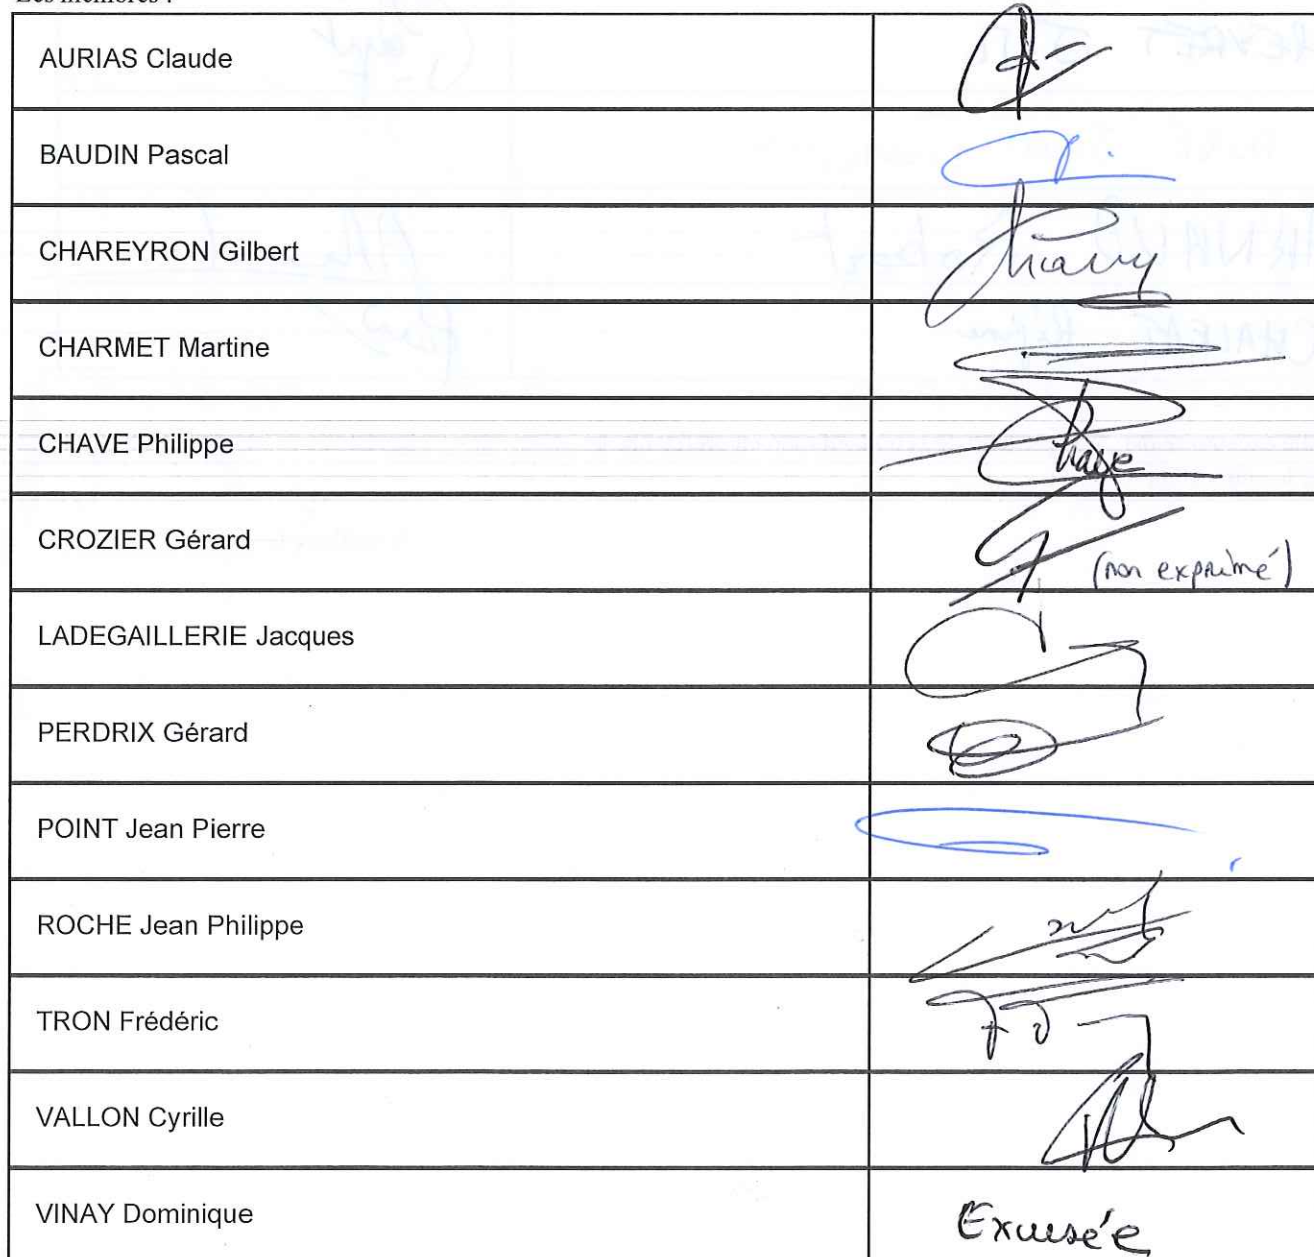 Les membres :
AURIAS Claude
BAUDIN Pascal
CHAREYRON Gilbert
CHARMET Martine
CHAVE Philippe
Chave
CROZIER Gérard
(non exprimé)
LADEGAILLERIE Jacques
PERDRIX Gérard
POINT Jean Pierre
ROCHE Jean Philippe
TRON Frédéric
VALLON Cyrille
VINAY Dominique
Excusée